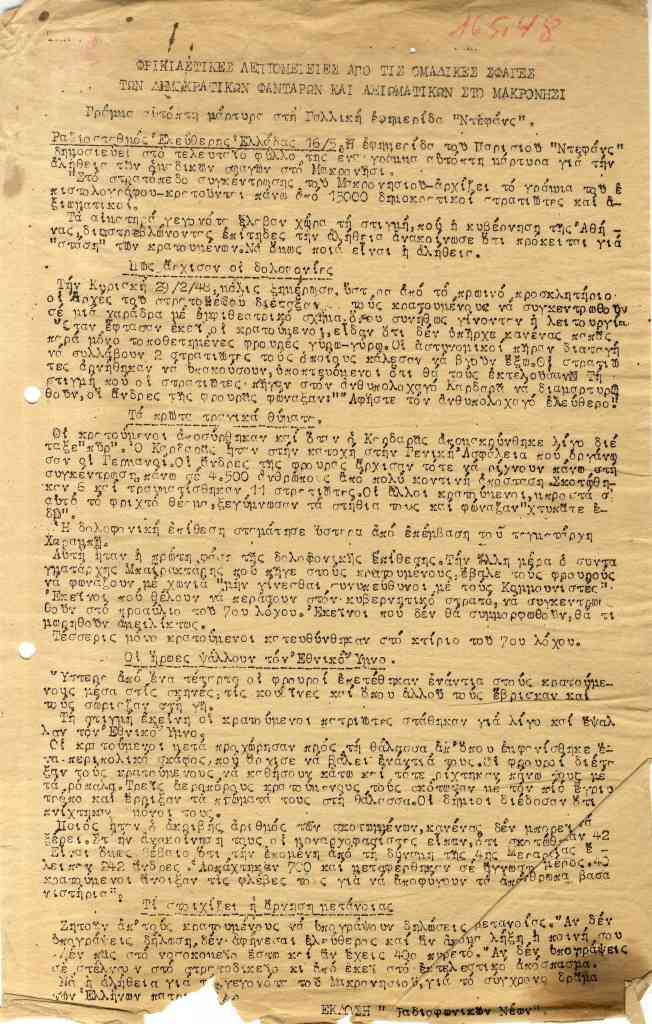 16.5.48
ΦΡΙΚΙΑΣΤΙΚΕΣ ΛΕΠΤΟΜΕΡΕΙΕΣ ΑΠΟ ΤΙΣ ΟΜΑΔΙΚΕΣ ΣΦΑΓΕΣ
ΤΩΝ ΔΗΜΟΚΡΑΤΙΚΩΝ ΦΑΝΤΑΡΩΝ ΚΑΙ ΑΞΙΩΜΑΤΙΚΩΝ ΣΤΟ ΜΑΚΡΟΝΗΣΙ
Γράμμα αὐτόπτη μάρτυρα στή Γαλλική ἐφημερίδα "Ντεφάνς".
Ραδιοσταθμός Ἐλεύθερης Ἑλλάδας 16/5. Ἡ ἐφημερίδα τοῦ Παρισιοῦ "Ντεφάνς"
δημοσιεύει στό τελευταῖο φύλλο της ἕνα γράμμα αὐτόπτη μάρτυρα γιά τήν
ἀλήθεια τῶν σφαγῶν στό Μακρονήσι.
"Στό στρατόπεδο συγκέντρωσης τοῦ Μακρονησιοῦ-ἀρχίζει τό γράμμα τοῦ ἐ
πιστολογράφου-κρατοῦνται πάνω ἀπό 15000 δημοκρατικοί στρατιῶτες καί ἀ-
ξιωματικοί.
Τά αἱματηρά γεγονότα ἔλαβαν χώρα τή στιγμή, πού ἡ κυβέρνηση τῆς Ἀθή -
νας, διαστρεβλώνοντας ἐπίτηδες τήν ἀλήθεια ἀνακοίνωσε ὅτι πρόκειται γιά
"στάση" τῶν κρατουμένων. Νά ὅμως ποιά εἶναι ἡ ἀλήθεια.
Πῶς ἄρχισαν οἱ δολοφονίες
Τήν Κυριακή 29/2/48, μόλις ξημέρωσε, ὕστερα ἀπό τό πρωινό προσκλητήριο
οἱ Ἀρχές τοῦ στρατοπέδου διέταξαν τούς κρατουμένους νά συγκεντρωθοῦν
σέ μιά χαράδρα μέ ἀμφιθεατρικό σχῆμα, ὅπου συνήθως γίνονταν ἡ λειτουργία.
Ὅταν ἔφτασαν ἐκεῖ οἱ κρατούμενοι, εἶδαν ὅτι δέν ὑπῆρχε κανένας παπᾶς
παρά μόνο τοποθετημένες φρουρές γύρω-γύρω. Οἱ ἀστυνομικοί πῆραν διαταγή
νά συλλάβουν 2 στρατιῶτες τούς ὁποίους κάλεσαν νά βγοῦν ἔξω. Οἱ στρατιῶ
τες ἀρνήθηκαν νά ὑπακούσουν, ὑποπτευόμενοι ὅτι θά τούς ἐκτελοῦσαν. Τή
στιγμή πού οἱ στρατιῶτες πῆγαν στόν ἀνθυπολοχαγό Καρδαρᾶ νά διαμαρτυρη
θοῦν, οἱ ἄνδρες τῆς φρουρᾶς φώναξαν: "Ἀφῆστε τόν ἀνθυπολοχαγό ἐλεύθερο".
Τά πρῶτα τραγικά θύματα.
Οἱ κρατούμενοι ἀποσύρθηκαν καί ὅταν ὁ Καρδαρᾶς ἀπομακρύνθηκε λίγο διέ
ταξε "πῦρ". Ὁ Καρδαρᾶς ἦταν στήν κατοχή στήν Γενική Ἀσφάλεια πού ὀργάνω
σαν οἱ Γερμανοί. Οἱ ἄνδρες τῆς φρουρᾶς ἄρχισαν τότε νά ρίχνουν πάνω στή
συγκέντρωση, πάνω σέ 4.500 ἀνθρώπους ἀπό πολύ κοντινή ἀπόσταση. Σκοτώθη-
καν 6 καί τραυματίσθηκαν 11 στρατιῶτες. Οἱ ἄλλοι κρατούμενοι, μπροστά σ'
αὐτό τό φριχτό θέαμα, ξεγύμνωσαν τά στήθια τους καί φώναξαν "χτυπᾶτε ἐ-
δῶ".
Ἡ δολοφονική ἐπίθεση σταμάτησε ὕστερα ἀπό ἐπέμβαση τοῦ ταγματάρχη
Καραμπᾶ.
Αὐτή ἦταν ἡ πρώτη φάση τῆς δολοφονικῆς ἐπίθεσης. Τήν ἄλλη μέρα ὁ συντα
γματάρχης Μπαϊρακτάρης πού πῆγε στούς κρατουμένους, ἔβαλε τούς φρουρούς
νά φωνάζουν μέ χωνιά "μήν γίνεσθαι συνυπεύθυνοι μέ τούς Κομμουνιστές".
Ἐκεῖνοι πού θέλουν νά περάσουν στόν κυβερνητικό στρατό, νά συγκεντρω
θοῦν στό προαύλιο τοῦ 7ου λόχου. Ἐκεῖνοι πού δέν θά συμμορφωθοῦν, θά τι
μωρηθοῦν ἀμείλικτως.
Τέσσερις μόνο κρατούμενοι κατευθύνθηκαν στό κτίριο τοῦ 7ου λόχου.
Οἱ ἥρωες ψάλλουν τόν Ἐθνικό Ὕμνο.
Ὕστερα ἀπό ἕνα τέταρτο οἱ φρουροί ἐπετέθηκαν ἐνάντια στούς κρατούμε-
νους μέσα στίς σκηνές, τίς κουζίνες καί ὅπου ἀλλοῦ τούς ἔβρισκαν καί
τούς σώριαζαν στή γῆ.
Τή στιγμή ἐκείνη οἱ κρατούμενοι πατριῶτες στάθηκαν γιά λίγο καί ἔψαλ
λαν τόν Ἐθνικό Ὕμνο.
Οἱ κρατούμενοι μετά προχώρησαν πρός τή θάλασσα ἀπ'ὅπου ἐμφανίσθηκε ἕ-
να περιπολικό σκάφος, πού ἄρχισε νά βάλει ἐνάντιά τους. Οἱ φρουροί διέτα-
ξαν τούς κρατουμένους νά καθήσουν κάτω καί τότε ρίχτηκαν πάνω τους μέ
τά ρόπαλα. Τρεῖς ἀεροπόρους κρατουμένους τούς σκότωσαν μέ τόν πιό ἄγριο
τρόπο καί ἔρριξαν τά πτώματά τους στή θάλασσα. Οἱ δήμιοι διέδοσαν ὅτι
πνίχτηκαν μόνοι τους.
Ποιός ἦταν ὁ ἀκριβής ἀριθμός τῶν σκοτωμένων, κανένας δέν μπορεῖ νά
ξέρει. Στήν ἀνακοίνωσή τους οἱ μοναρχοφασίστες εἶπαν, ὅτι σκοτώθηκαν 42
Εἶναι ὅμως βέβαιο ὅτι, τήν ἑπομένη ἀπό τή δύναμη τῆς 4ης Μεραρχίας ἔ-
λειπαν 242 ἄνδρες. Ἁρπάχτηκαν 700 καί μεταφέρθηκαν σέ ἄγνωστο μέρος. 40
κρατούμενοι ἄνοιξαν τίς φλέβες τους γιά νά ἀποφύγουν τά ἀπάνθρωπα βασα
νιστήρια".
Τί στοιχίζει ἡ ἄρνηση μετάνοιας
Ζητοῦν ἀπ'τούς κρατουμένους νά ὑπογράψουν δηλώσεις μετανοίας. "Ἄν δέν
ὑπογράψεις δήλωση, δέν ἀφήνεσαι ἐλεύθερος καί ἄν ἀκόμα λήξη ἡ ποινή σου
Δέν πᾶς στό νοσοκομεῖο ἔστω καί ἄν ἔχεις 40ο πυρετό. "Ἄν δέν ὑπογράψεις
σέ στέλνουν στό στρατοδικεῖο κι ἀπό ἐκεῖ στό ἐκτελεστικό ἀπόσπασμα.
Νά ἡ ἀλήθεια γιά τά γεγονότα τοῦ Μακρονησιοῦ, γιά τό σύγχρονο δρᾶμα
τῶν Ἑλλήνων
ΕΚΔΟΣΗ "Ραδιοφωνικῶν Νέων".